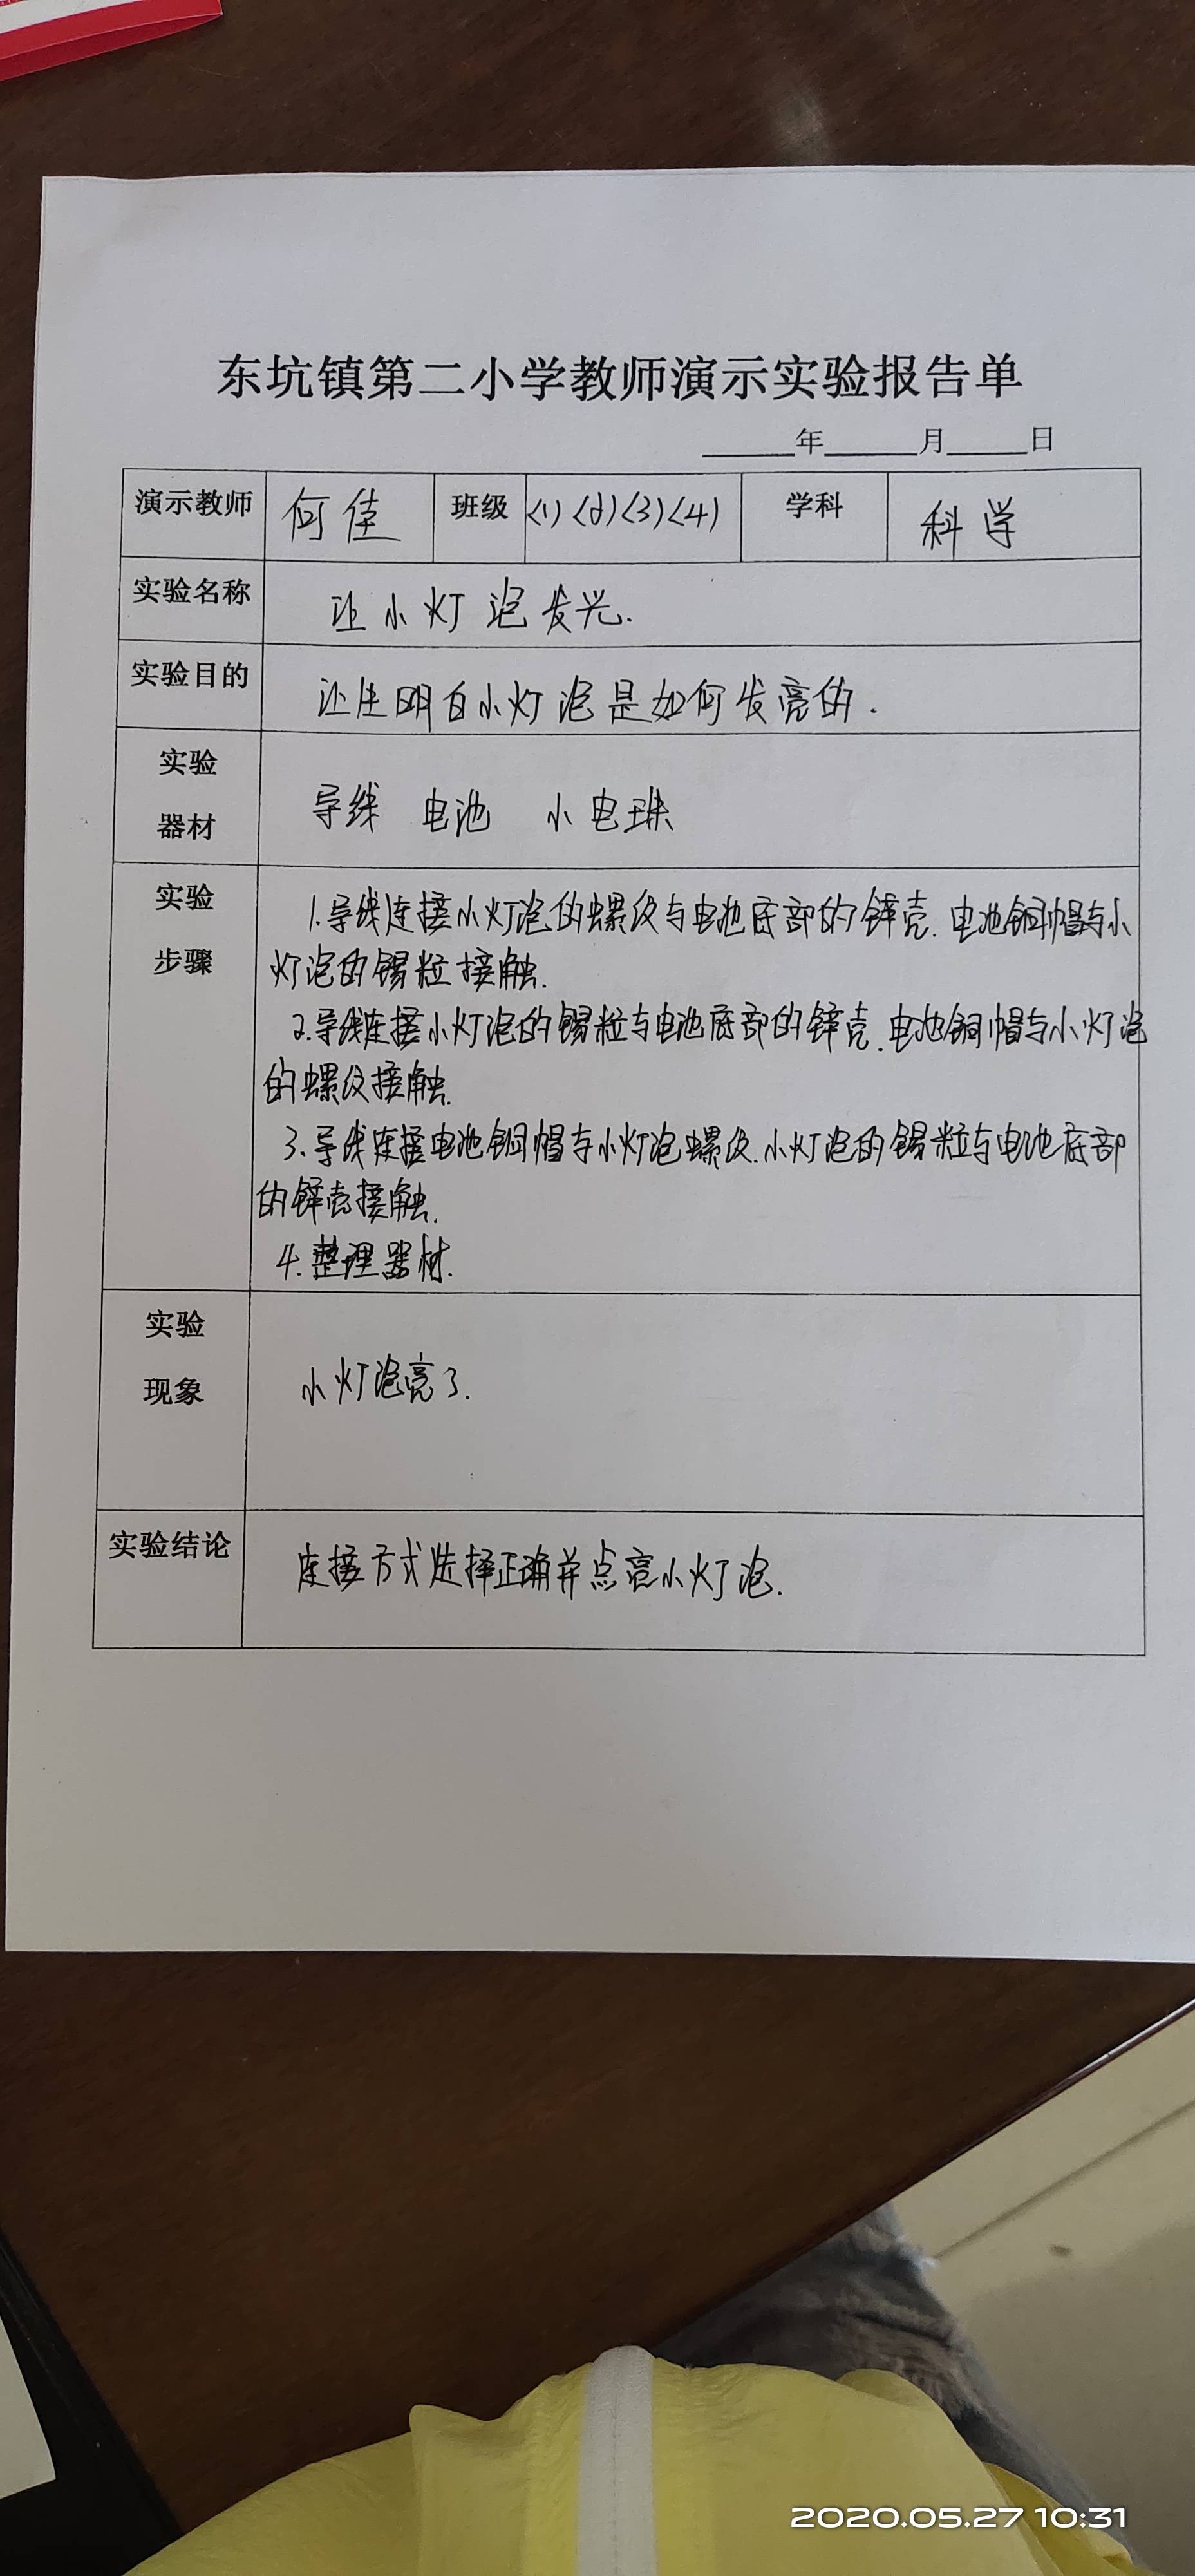 东坑镇第二小学教师演示实验报告单
年 月 日
演示教师 何佳 班级 (1)(2)(3)(4) 学科 科学
实验名称 让小灯泡发光.
实验目的 让生明白小灯泡是如何发亮的.
实验
器材
导线 电池 小电珠
实验
步骤
1.导线连接小灯泡的螺纹与电池底部的锌壳.电池铜帽与小
灯泡的锡粒接触.
2.导线连接小灯泡的锡粒与电池底部的锌壳.电池铜帽与小灯泡
的螺纹接触.
3.导线连接电池铜帽与小灯泡螺纹.小灯泡的锡粒与电池底部
的锌壳接触.
4.整理器材.
实验
现象
小灯泡亮了.
实验结论 连接方式选择正确并点亮小灯泡.
2020.05.27 10:31